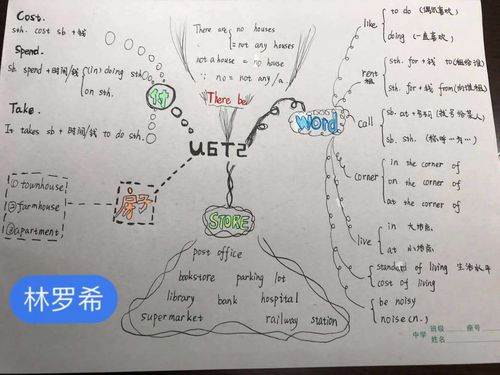 Cost.
sth. cost sb + 钱
Spend.
sb spend + 时间/钱 (in) doing sth
on sth.
Take.
It takes sb + 时间/钱 to do sth.
付
There are no houses
= not any houses
not a house = no house
∵ no = not any/a.
There be
U6T2
word
like
to do (偶尔喜欢)
doing (一直喜欢)
rent
租
sth. for + 钱 to(租给谁)
sth. for + 钱 from(向谁租)
call
sb. at +号码 (拨号给某人)
sb. sth. (称呼…为…)
corner
in the corner of
on the corner of
at the corner of
live
in 大地点
at 小地点
standard of living 生活水平
cost of living
be noisy
noise(n.)
房子
①townhouse
②farmhouse
③apartment
STORE
post office
bookstore parking lot
library bank hospital
supermarket railway station
林罗希
中学 班级 座号
姓名